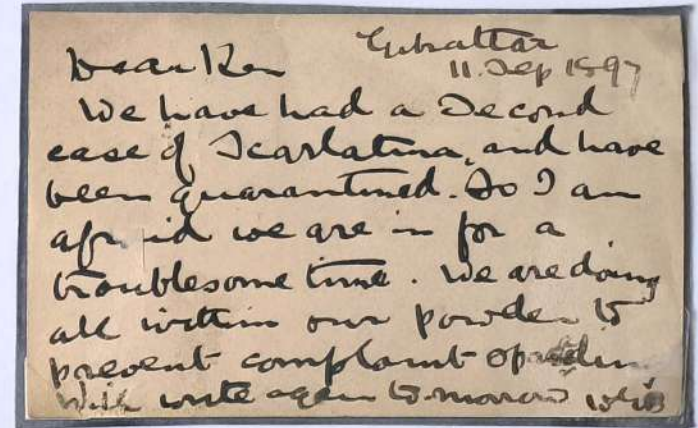 Gibraltar
11. Sep 1897
Dear Ken
We have had a Second
case of Scarlatina, and have
been quarantined. So I am
afraid we are in for a
troublesome time. We are doing
all within our powder to
prevent complaint
Will write again to-morrow